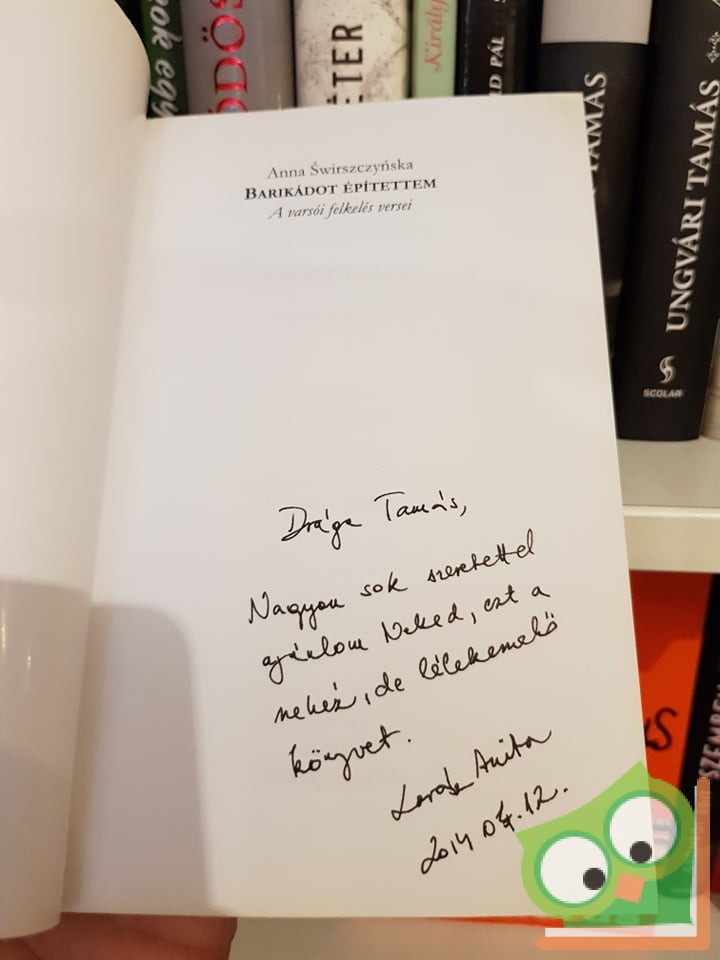 ok egy
ÓDÖS
ÉTER
Király
D PÁL
TAMÁS
UNGVÁRI TAMÁS
SCOLAR
Anna Świrszczyńska
BARIKÁDOT ÉPÍTETTEM
A varsói felkelés versei
Drága Tamás,
Nagyon sok szeretettel
ajánlom Neked, ezt a
nehéz, de lélekemelő
könyvet.
Anita
2014